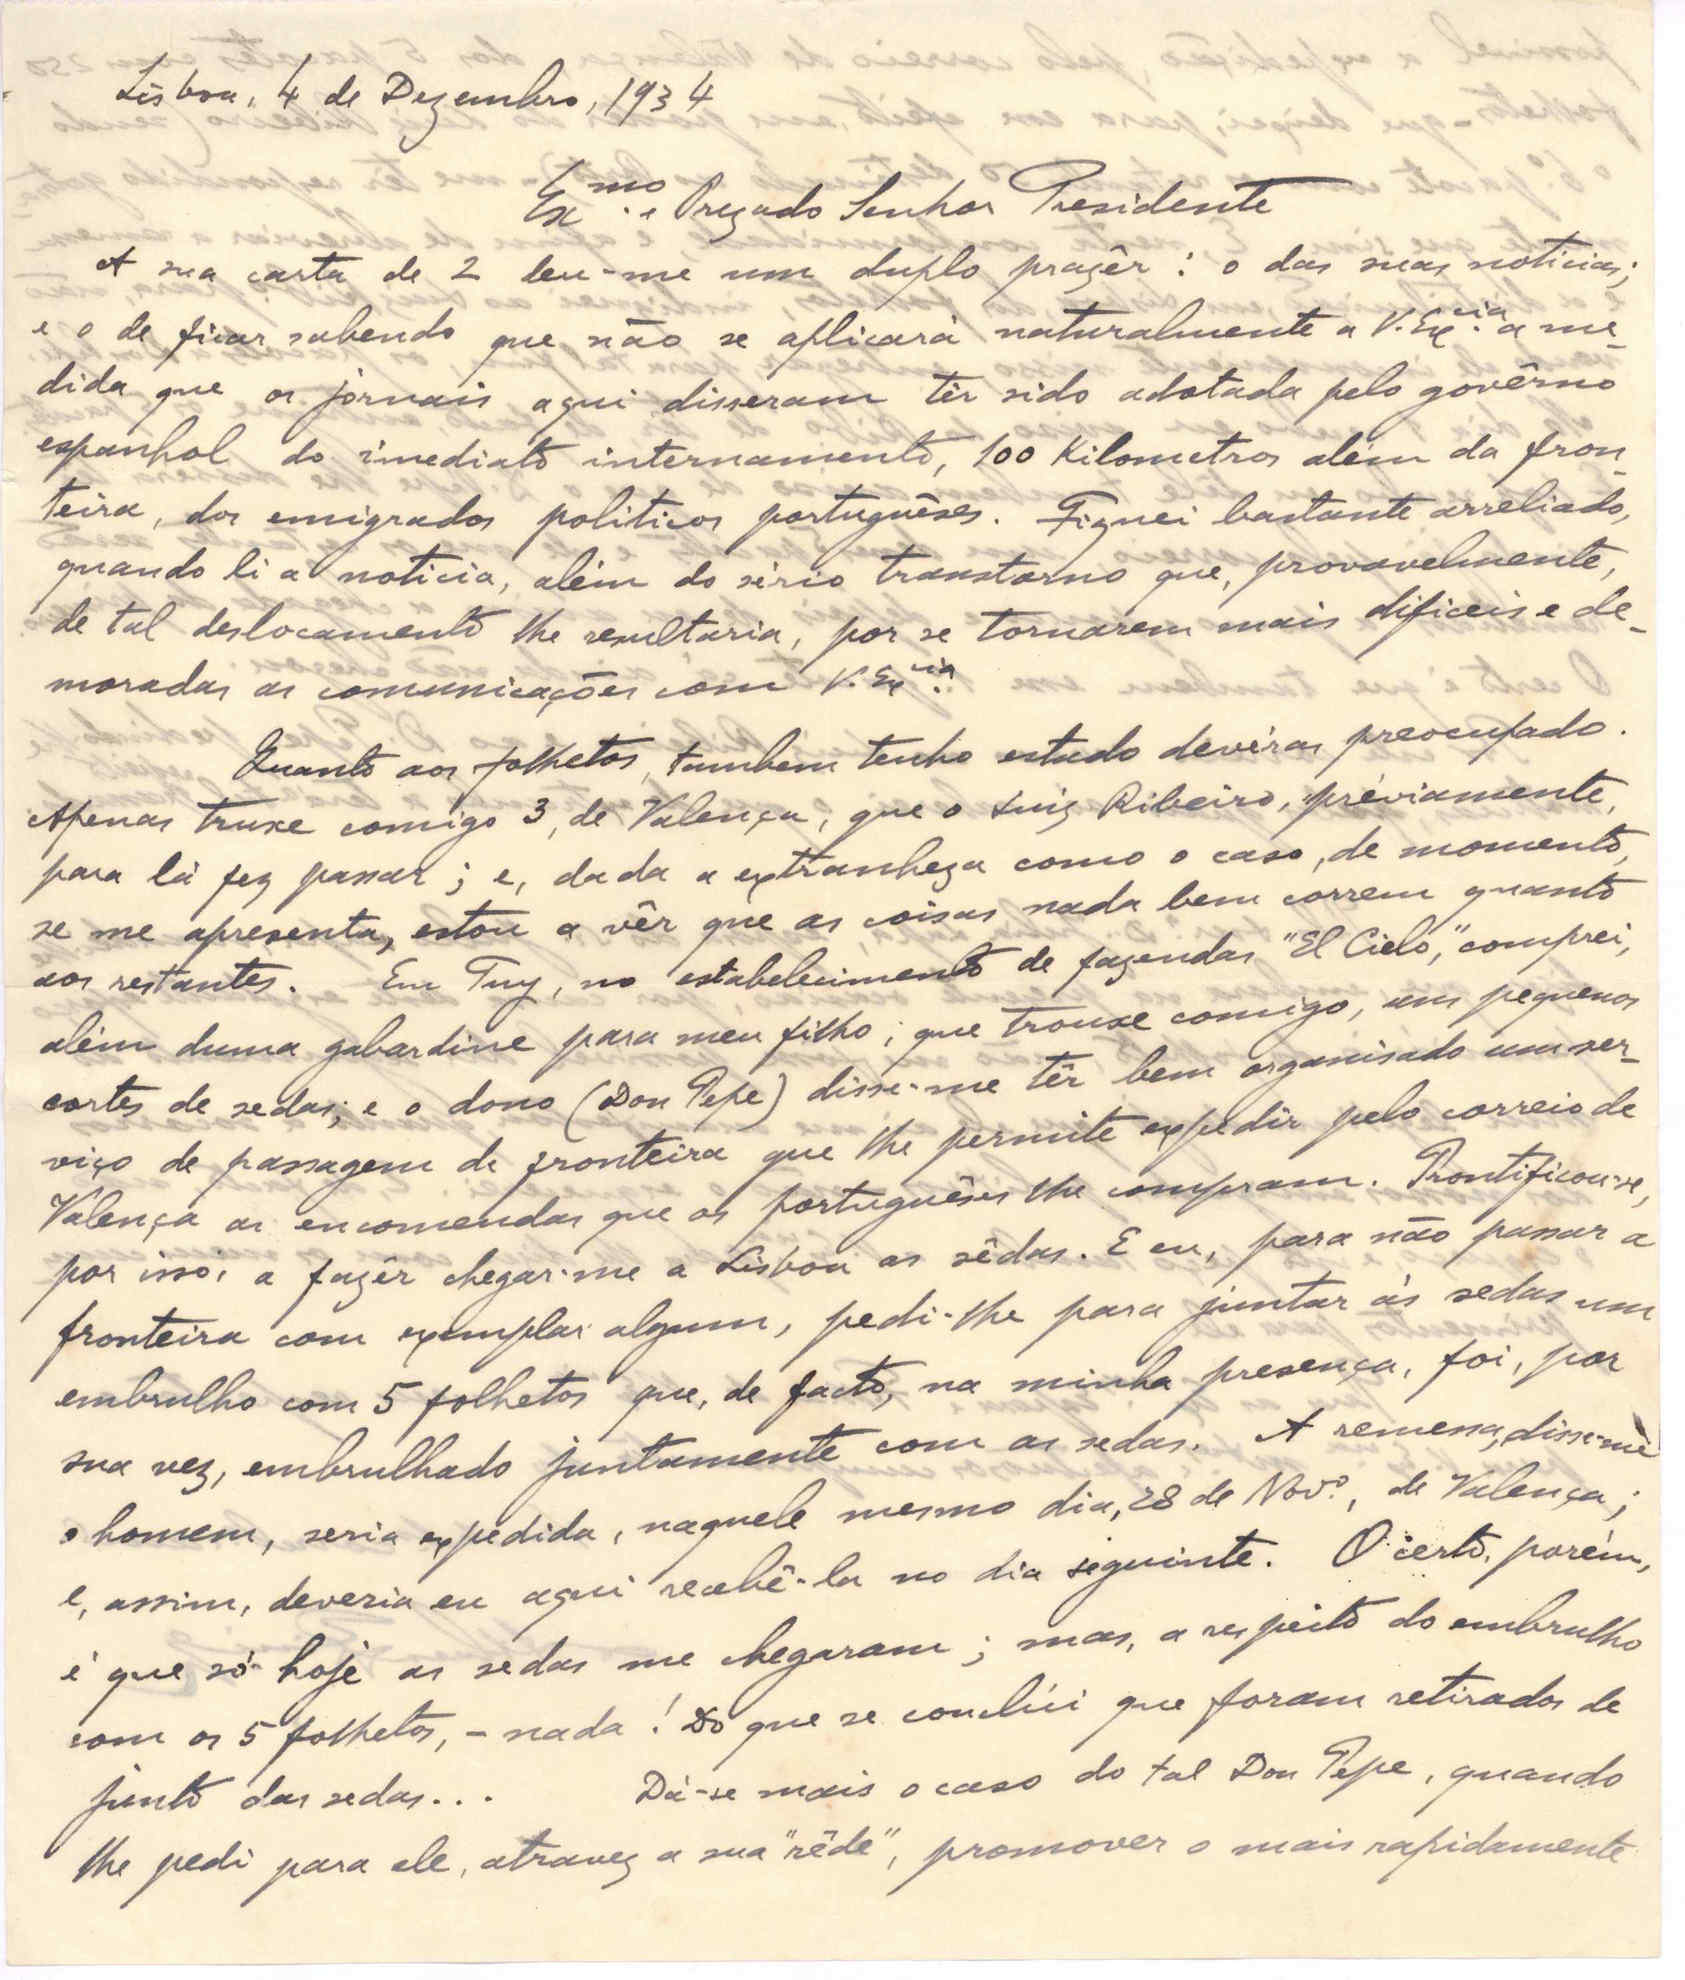 Lisboa, 4 de Dezembro, 1934
Exmo. e Prezado Senhor Presidente
A sua carta de 2 deu-me um duplo prazêr: o das suas noticias;
e o de ficar sabendo que não se aplicará naturalmente a V. Excia. a me-
dida que os jornais aqui disseram têr sido adotada pelo govêrno
espanhol do imediato internamento, 100 Kilometros além da fron-
teira, dos emigrados politicos portuguêses. Fiquei bastante arreliado,
quando li a noticia, além do sério transtorno que, provavelmente,
de tal deslocamento lhe resultaria, por se tornarem mais dificeis e de-
moradas as comunicações com V. Excia.
Quanto aos folhetos, tambem tenho estado devéras preocupado.
Apenas truxe comigo 3, de Valença, que o Luiz Ribeiro, préviamente,
para lá fez passar; e, dada a extranheza como o caso, de momento,
se me apresenta, estou a vêr que as coisas nada bem correm quanto
aos restantes. Em Tuy, no estabelecimento de fazendas "El Cielo," comprei,
além duma gabardine para meu filho, que trouxe comigo, uns pequenos
cortes de sedas; e o dono (Don Pepe) disse-me têr bem organisado um ser-
viço de passagem de fronteira que lhe permite expedir pelo correio de
Valença as encomendas que os portuguêses lhe compram. Prontificou-se,
por isso, a fazêr chegar-me a Lisboa as sêdas. E eu, para não passar a
fronteira com exemplar algum, pedi-lhe para juntar ás sedas um
embrulho com 5 folhetos que, de facto, na minha presença, foi, por
sua vez, embrulhado juntamente com as sedas. A remessa, disse-me
o homem, seria expedida, naquele mesmo dia, 28 de Novº., de Valença;
e, assim, deveria eu aqui recebê-la no dia seguinte. O certo, porém,
é que só hoje as sedas me chegaram; mas, a respeito do embrulho
com os 5 folhetos, - nada! Do que se conclúi que foram retirados de
junto das sedas... Dá-se mais o caso do tal Don Pepe, quando
lhe pedi para ele, atravez a sua "rêde", promover o mais rapidamente